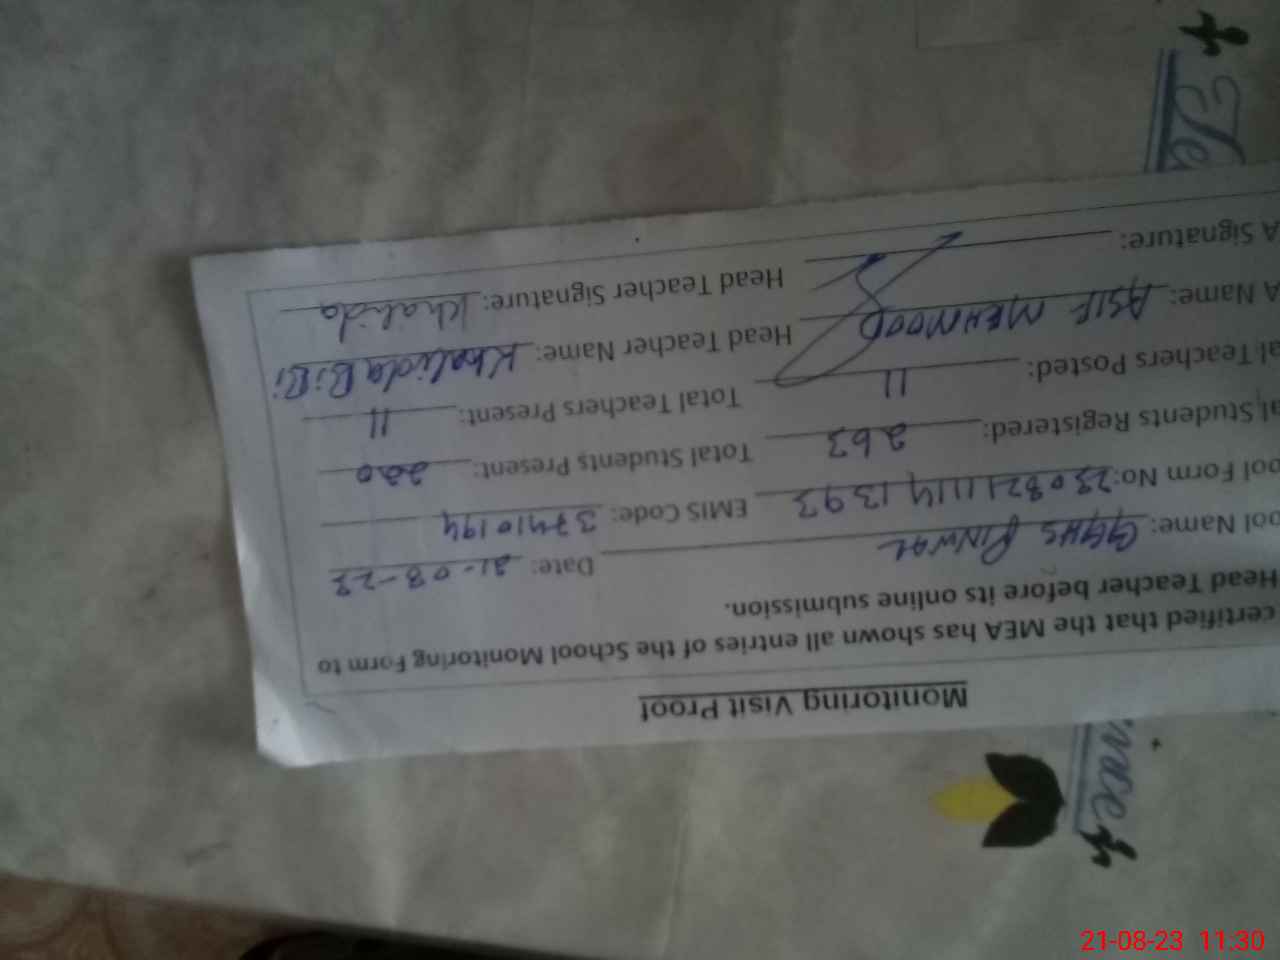 Monitoring Visit Proof
certified that the MEA has shown all entries of the School Monitoring Form to
Head Teacher before its online submission.
ool Name: GGHS PINWAL Date: 21-08-23
ool Form No: 23082111141393 EMIS Code: 37410194
al Students Registered: 263 Total Students Present: 220
al Teachers Posted: 11 Total Teachers Present: 11
A Name: ASIF MEHMOOD Head Teacher Name: Khalida BiBi
A Signature: Head Teacher Signature: Khalida
21-08-23 11:30